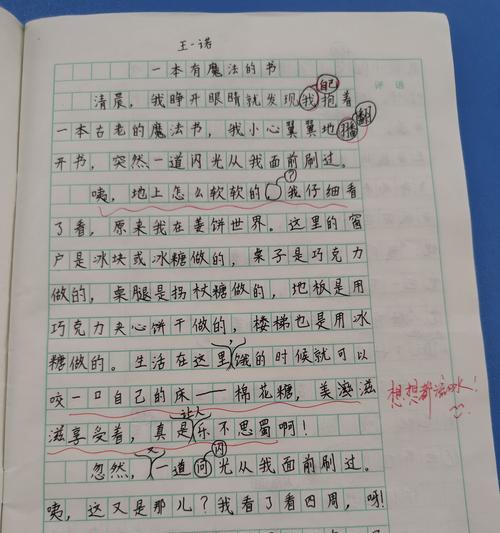 王一诺
一本有魔法的书
评语
自己
清晨，我睁开眼睛就发现我抱着
翻
一本古老的魔法书，我小心翼翼地播
开书，突然一道闪光从我面前刷过。
？
咦，地上怎么软软的，我仔细看
了看，原来我在姜饼世界。这里的窗
户是冰块或冰糖做的，桌子是巧克力
做的，桌腿是拐杖糖做的，地板是用
巧克力夹心饼干做的，楼梯也是用冰
糖做的。生活在这里，饿的时候就可以
咬一口自己的床——棉花糖，美滋滋
想想都流口水！
让人
滋享受着，真是乐不思蜀啊！
又 闪
忽然，一道问光从我面前刷过。
咦，这又是那儿？我看了看四周，呀！